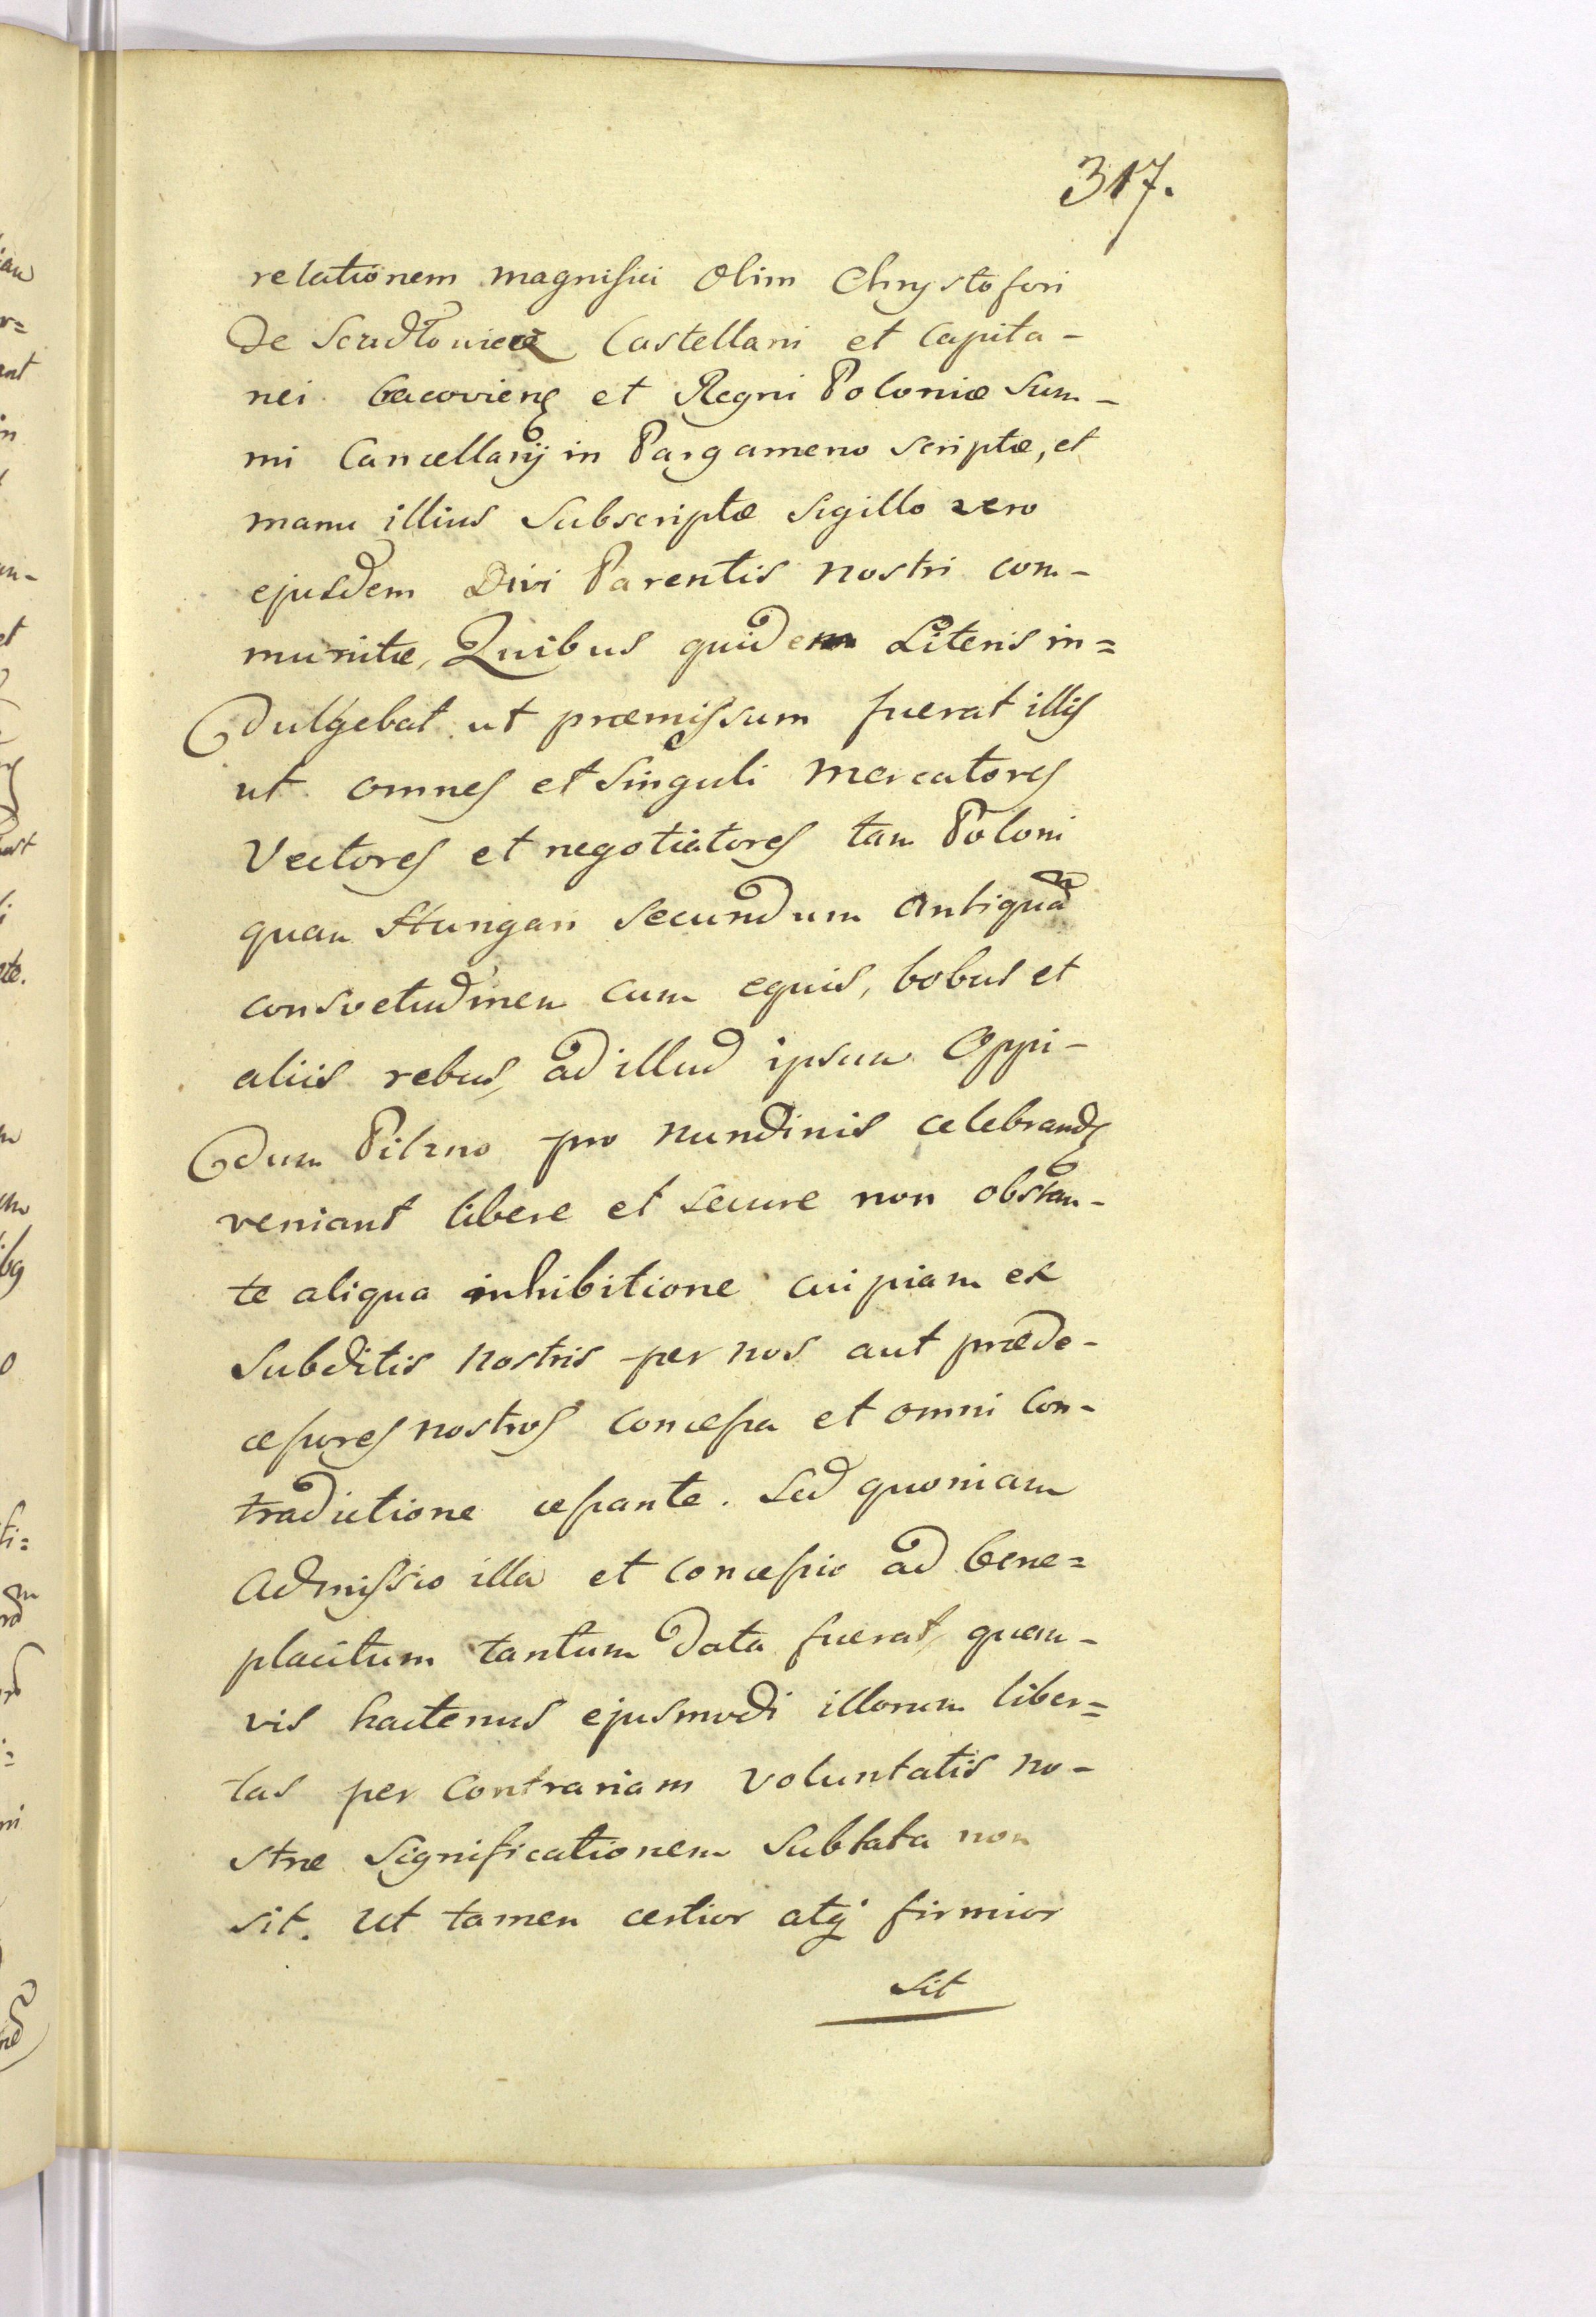 317.
relationem magnifici olim Chrystofori
De Scudłowiecz Castellani et Capita-
nei Cracoviens et Regni Poloniæ Sum-
mi Cancellarij in Pargameno scriptæ, et
manu illius Subscriptæ Sigillo vero
ejusdem Divi Parentis nostri com-
munitæ, Quibus quidem Literis in=
dulgebat ut præmissum fuerat illis
ut omnes et Singuli Mercatores
Vectores et negotiatores tam Poloni
quam Hungari Secundum Antiquam
consvetudinem cum equis, bobus et
aliis rebus, ad illud ipsum Oppi-
dum Pilzno pro Nundinis celebrandis
veniant libere et secure non obstan-
te aliqua inhibitione cuipiam ex
Subditis Nostris per nos aut præde-
cessores nostros concessa et omni con-
tradictione cessante. Sed quoniam
Admissio illa et concessio ad bene=
placitum tantum data fuerat, quam-
vis hactenus ejusmodi illorum liber=
tas per Contrariam Voluntatis no-
stræ Significationem Sublata non
sit. Ut tamen certior atq firmior
sit